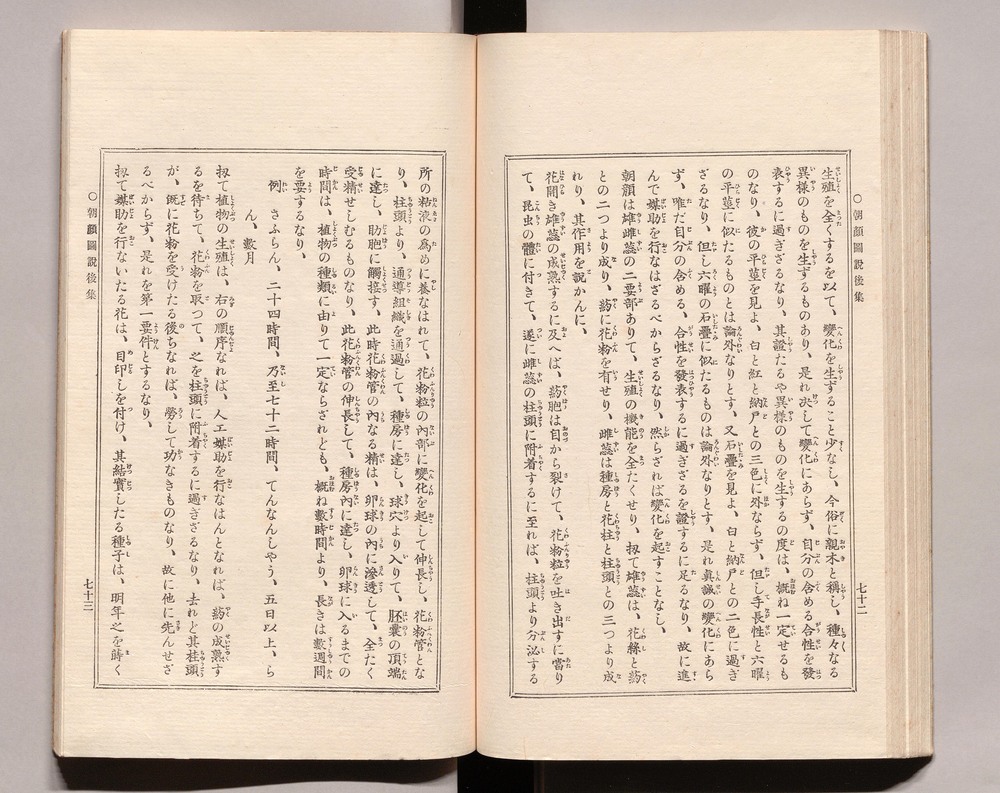 ○朝顏圖說後集
七十二
生殖を全くするを以て、變化を生すること少なし、今俗に親木と稱し、種々なる
異樣のものを生ずるものあり、是れ决して變化にあらず、自分の含める合性を發
表するに過ぎざるなり、其證たるや異樣のものを生するの度は、概ね一定せるも
のなり、彼の平簞を見よ、白と紅と納戸との三色に外ならず、但し手長性と六曜
の平簞に似たるものとは論外なりとす、又石疊を見よ、白と納戸との二色に過ぎ
ざるなり、但し六曜の石疊に似たるものは論外なりとす、是れ眞誠の變化にあら
ず、唯だ自分の含める、合性を發表するに過ぎざるを證するに足るなり、故に進
んで媒助を行なはざるべからざるなり、然らざれば變化を起すことなし、
朝顏は雄雌蕊の二要部ありて、生殖の機能を全たくせり、扨て雄蕊は、花絲と葯
との二つより成り、葯に花粉を有せり、雌蕊は種房と花柱と柱頭との三つより成
れり、其作用を說かんに、
花開き雄蕊の成熟するに及へば、葯胞は自から裂けて、花粉粒を吐き出すに當り
て、昆虫の體に付きて、遂に雌蕊の柱頭に附着するに至れば、柱頭より分泌する
所の粘液の爲めに養なはれて、花粉粒の內部に變化を起して伸長し、花粉管とな
り、柱頭より、通導組織を通過して、種房に達し、球穴より入りて、胚囊の頂端
に達し、助胞に觸接す、此時花粉管の內なる精は、卵球の內に滲透して、全たく
受精せしむるものなり、此花粉管の伸長して、種房內に達し、卵球に入るまでの
時間は、植物の種類に由りて一定ならざれども、概ね數時間より、長きは數週間
を要するなり、
例 さふらん、二十四時間、乃至七十二時間、てんなんしやう、五日以上、ら
ん、數月
扨て植物の生殖は、右の順序なれば、人工媒助を行なはんとなれば、葯の成熟す
るを待ちて、花粉を取つて、之を柱頭に附着するに過ぎざるなり、去れど其柱頭
が、旣に花粉を受けたる後ちなれば、勞して功なきものなり、故に他に先んせざ
るべからず、是れを第一要件とするなり、
扨て媒助を行ないたる花は、目印しを付け、其結實したる種子は、明年之を蒔く
○朝顏圖說後集
七十三